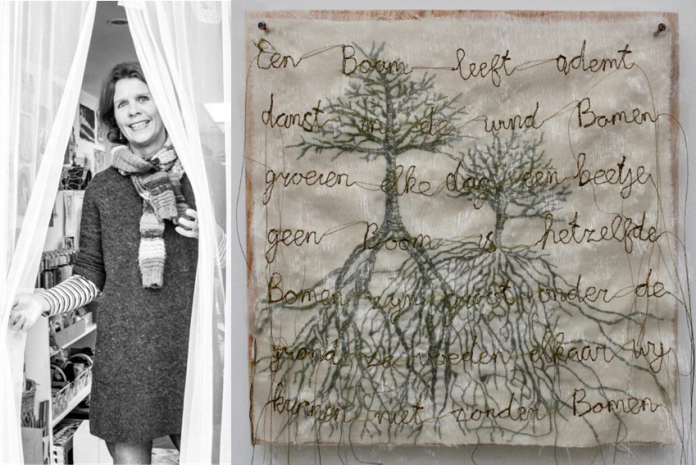 Een Boom leeft ademt
danst in de wind Bomen
groeien elke dag een beetje
geen Boom is hetzelfde
Bomen zijn groot onder de
grond ze voeden elkaar wy
kunnen niet zonder Bomen